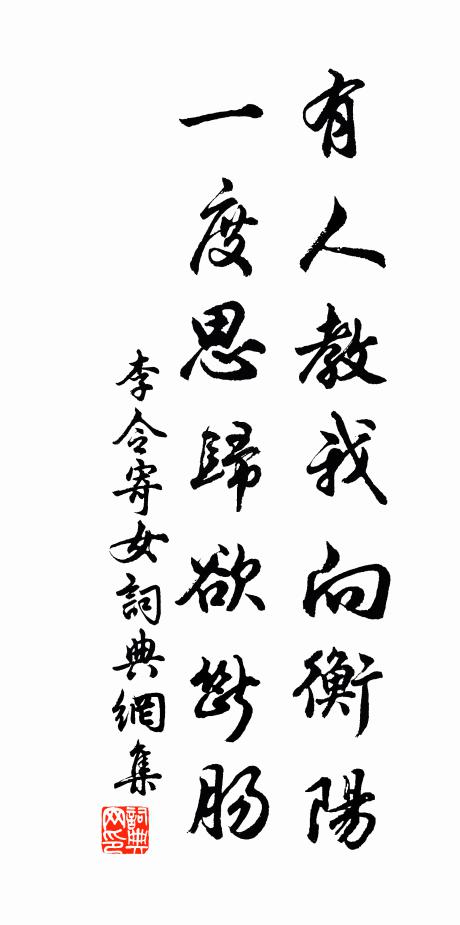 有人教我向衡陽
一度思歸欲斷腸
李令寄女詞典網集
詞典網印